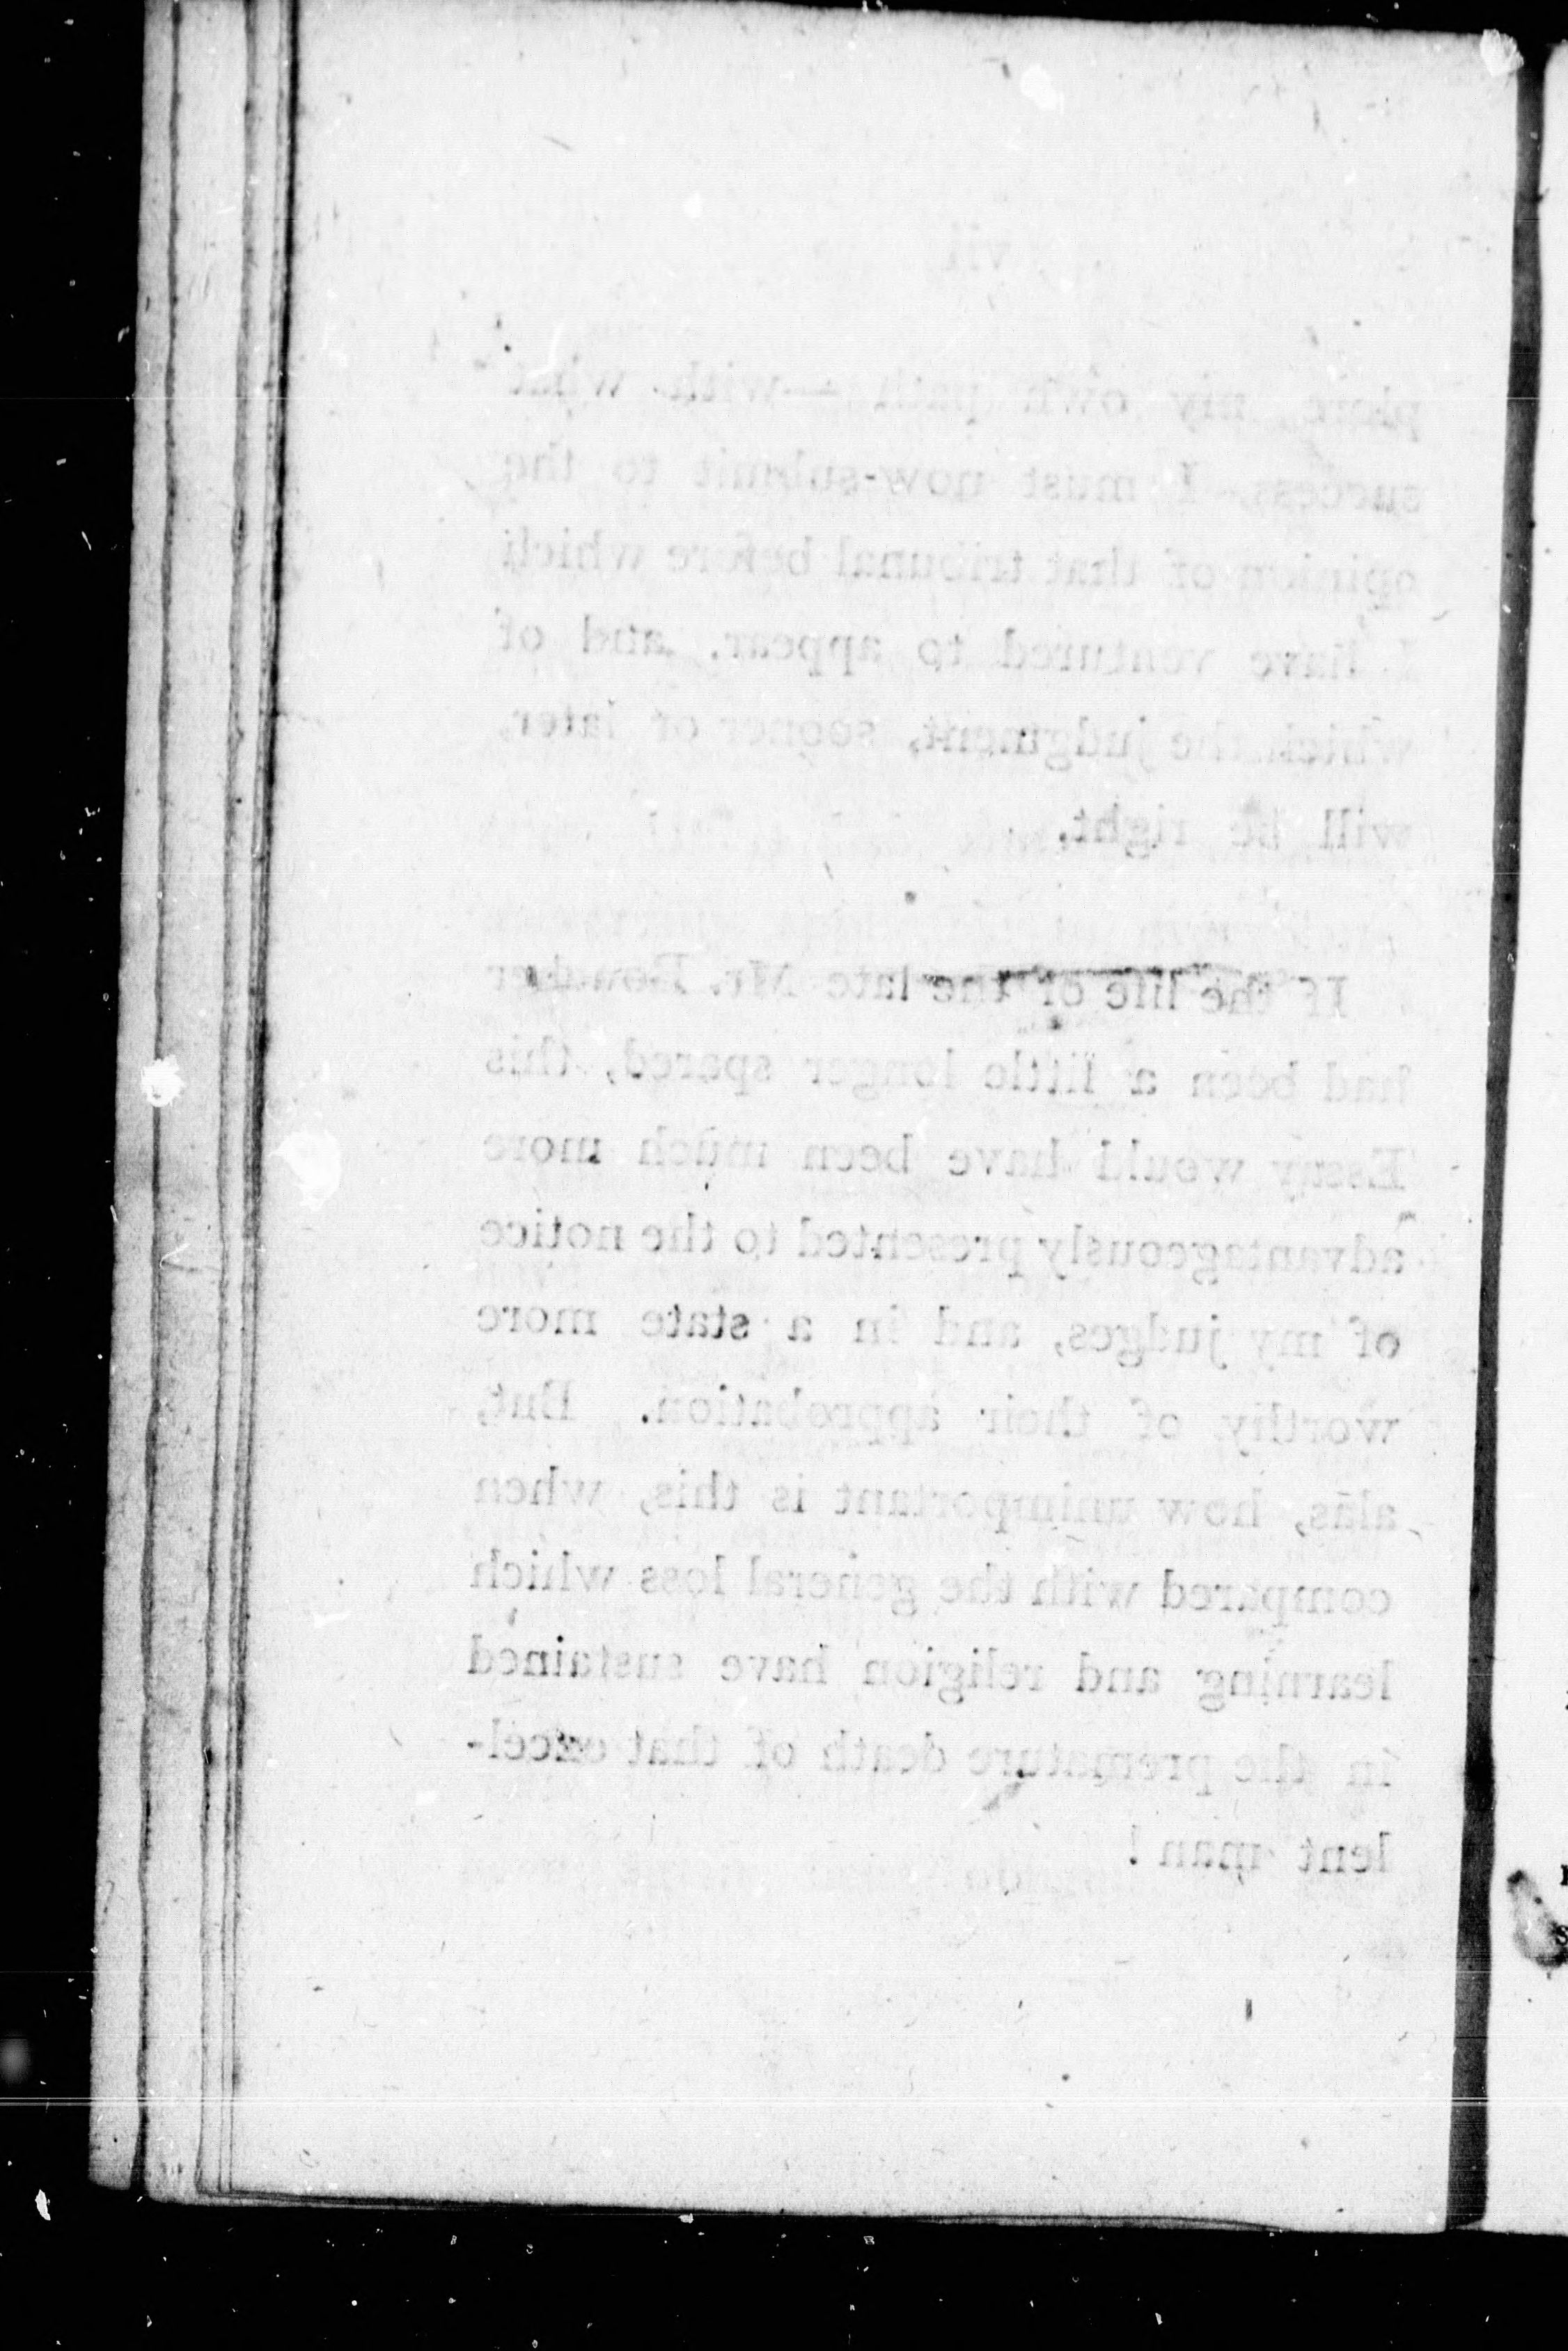 vii
my own path —with what
success, I must now submit to the
opinion of that tribunal before which
I have ventured to appear, and of
which the judgment, sooner or later,
will be right.
If the life of the late Mr.
had been a little longer spared, this
Essay would have been much more
advantageously presented to the notice
of my judges, and in a state more
worthy of their approbation. But,
alas, how unimportant is this, when
compared with the general loss which
learning and religion have sustained
in the premature death of that excel-
lent man !